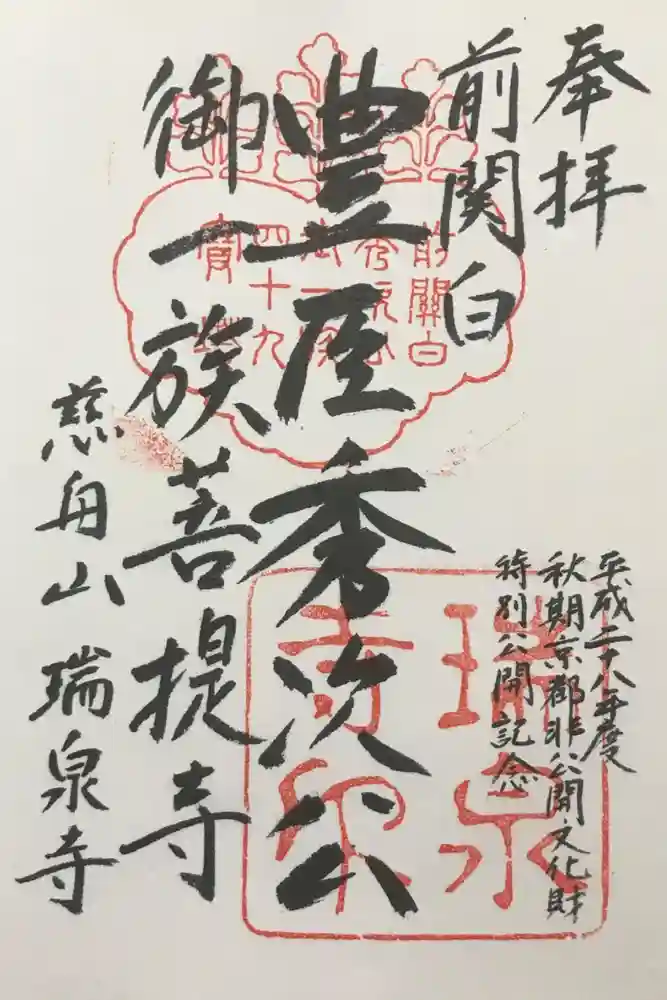 奉拝
平成二十八年度
秋期京都非公開文化財
特別公開記念
前関白
豊臣秀次公
御一族菩提寺
慈舟山 瑞泉寺
前關白
四十九
瑞泉
寺印